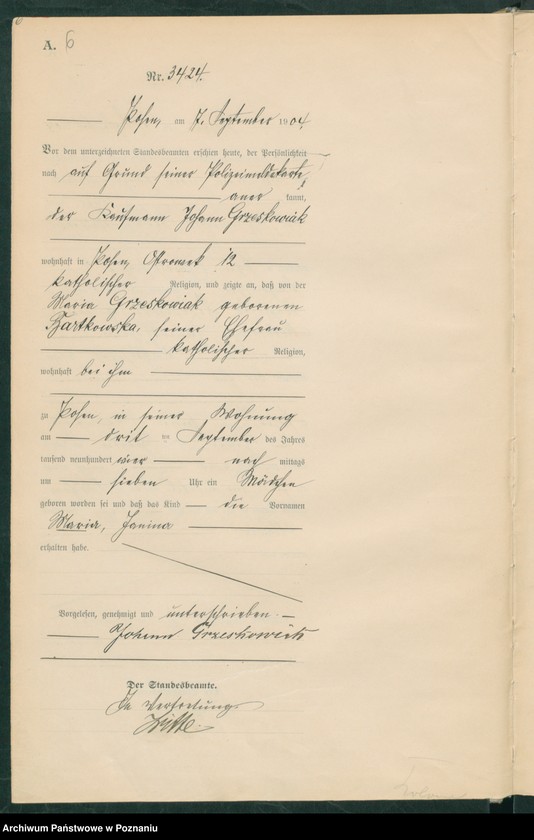 6
A. 6
Nr. 3424.
Posen, am 7. September 1904.
Vor dem unterzeichneten Standesbeamten erschien heute, der Persönlichkeit
nach auf Grund seiner Polizeimeldekarte,
aner kannt,
der Kaufmann Johann Grzeskowiak
wohnhaft in Posen, 12
katholischer Religion, und zeigte an, daß von der
Maria Grzeskowiak geborenen
Bartkowska, seiner Ehefrau
katholischer Religion,
wohnhaft bei ihm
zu Posen, in seiner Wohnung
am September des Jahres
tausend neunhundert vier nach mittags
um sieben Uhr ein Mädchen
geboren worden sei und daß das Kind die Vornamen
Maria, Janina
erhalten habe.
Vorgelesen, genehmigt und unterschrieben.
Johann Grzeskowiak
Der Standesbeamte.
In Vertretung
Archiwum Państwowe w Poznaniu